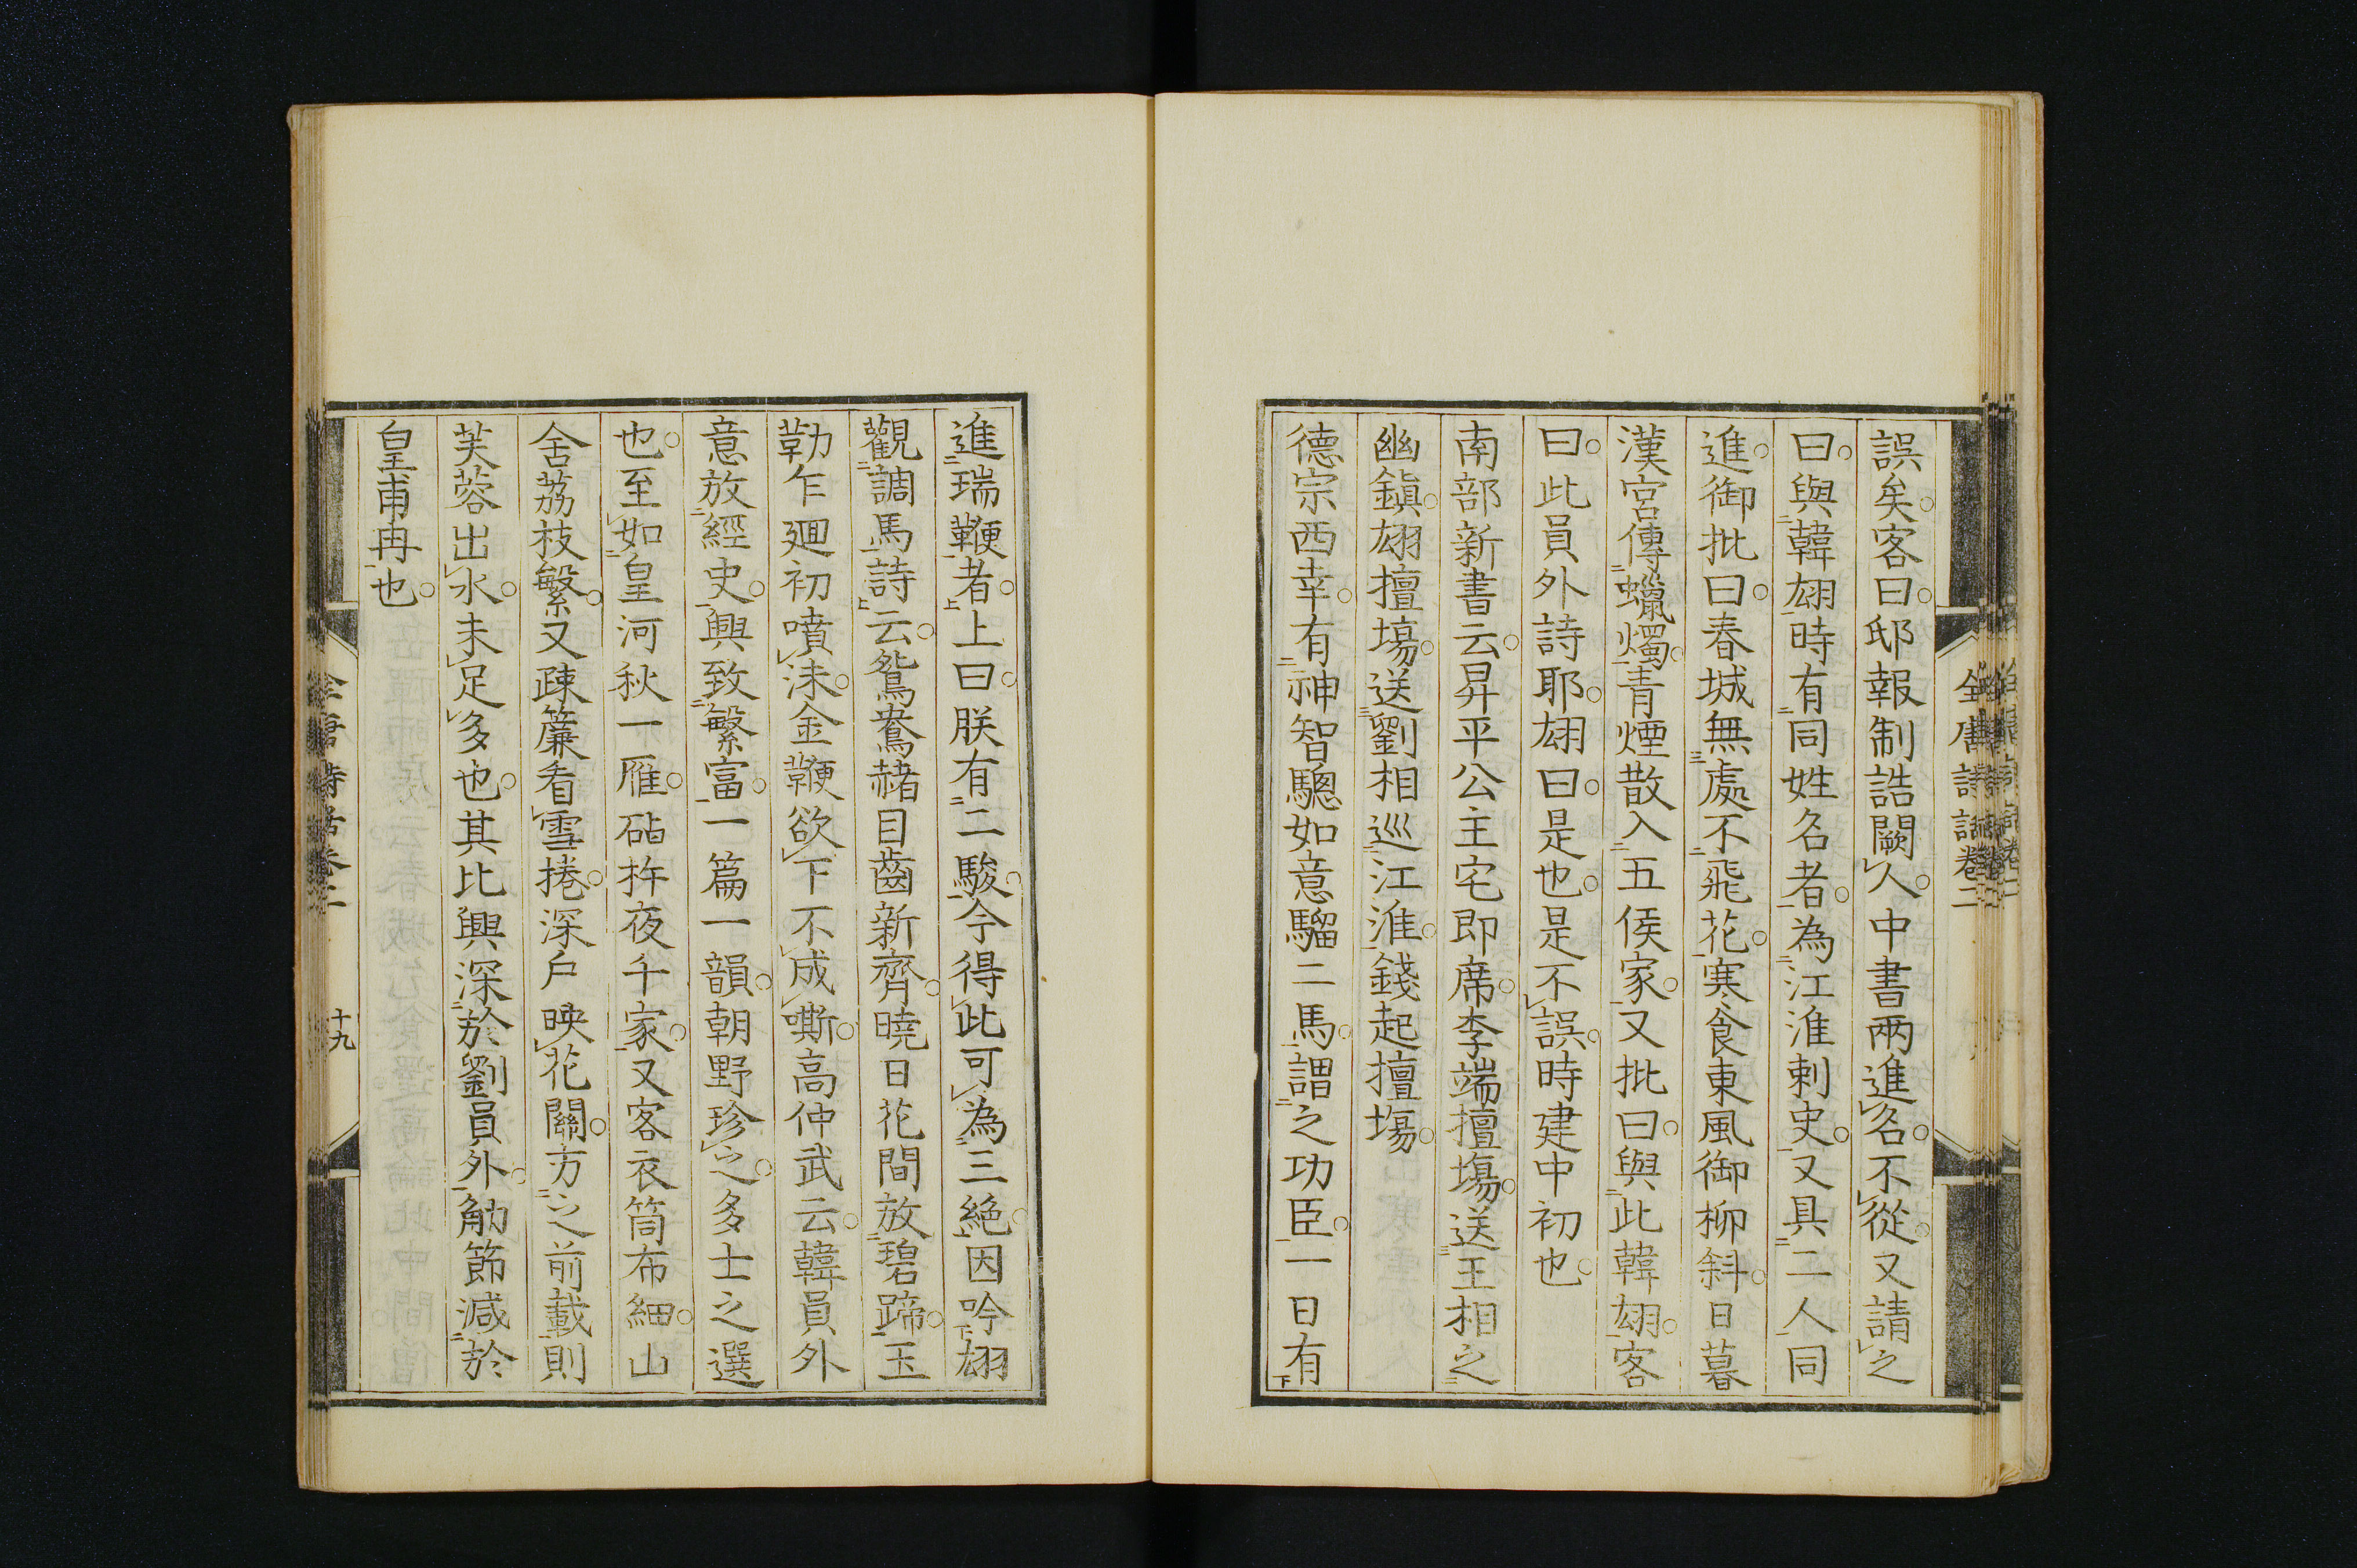 全唐詩話卷二
誤矣客曰邸報制誥闕人中書兩進名不從又請之
曰與韓翃時有同姓名者為江淮刺史又具二人同
進御批曰春城無處不飛花寒食東風御柳斜日暮
漢宮傳蠟燭青煙散入五侯家又批曰與此韓翃客
曰此員外詩耶翃曰是也是不誤時建中初也
南部新書云昇平公主宅即席李端擅場送王相之
幽鎭翃擅場送劉相巡江淮錢起擅場
德宗西幸有神智驄如意騮二馬謂之功臣一日有
進瑞鞭者上曰朕有二駿今得此可為三絶因吟翃
觀調馬詩云鴛鴦赭目齒新齊曉日花間放碧蹄玉
勒乍迴初噴沫金鞭欲下不成嘶高仲武云韓員外
意放經史興致繁富一篇一韻朝野珍之多士之選
也至如皇河秋一雁砧杵夜千家又客衣筒布細山
舍荔枝繁又疎簾看雪捲深戶映花關方之前載則
芙蓉出水未足多也其比興深於劉員外觔節減於
皇甫冉也
全唐詩話卷二
十九